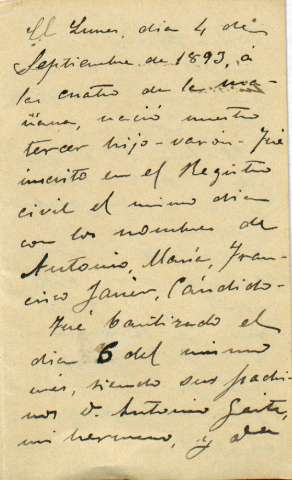 El Lunes, dia 4 de
Septiembre de 1893, á
las cuatro de la ma-
ñana, nació nuestro
tercer hijo-varón- Fué
inscrito en el Registro
civil el mismo dia
con los nombres de
Antonio, María, Fran-
cisco Javier, Cándido-
Fué bautizado el
dia 6 del mismo
mes, siendo sus padri-
nos D. Antonio
mi hermano, y